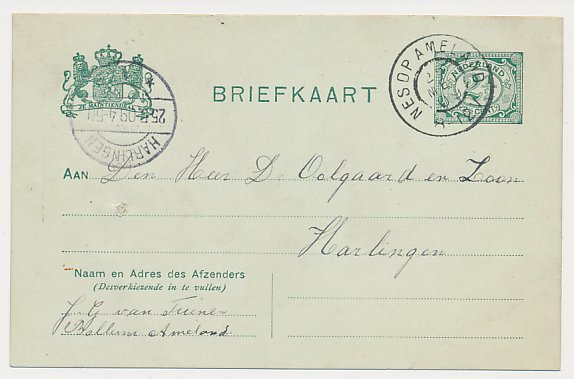 NES OP AMELAND
NEDERLAND
JE MAINTIENDRAI
BRIEFKAART
HARLINGEN
AAN Den Heer D. Oolgaard en Zoon
Harlingen
Naam en Adres des Afzenders
(Desverkiezende in te vullen)
J. G. van Tuinen
Hollum Ameland